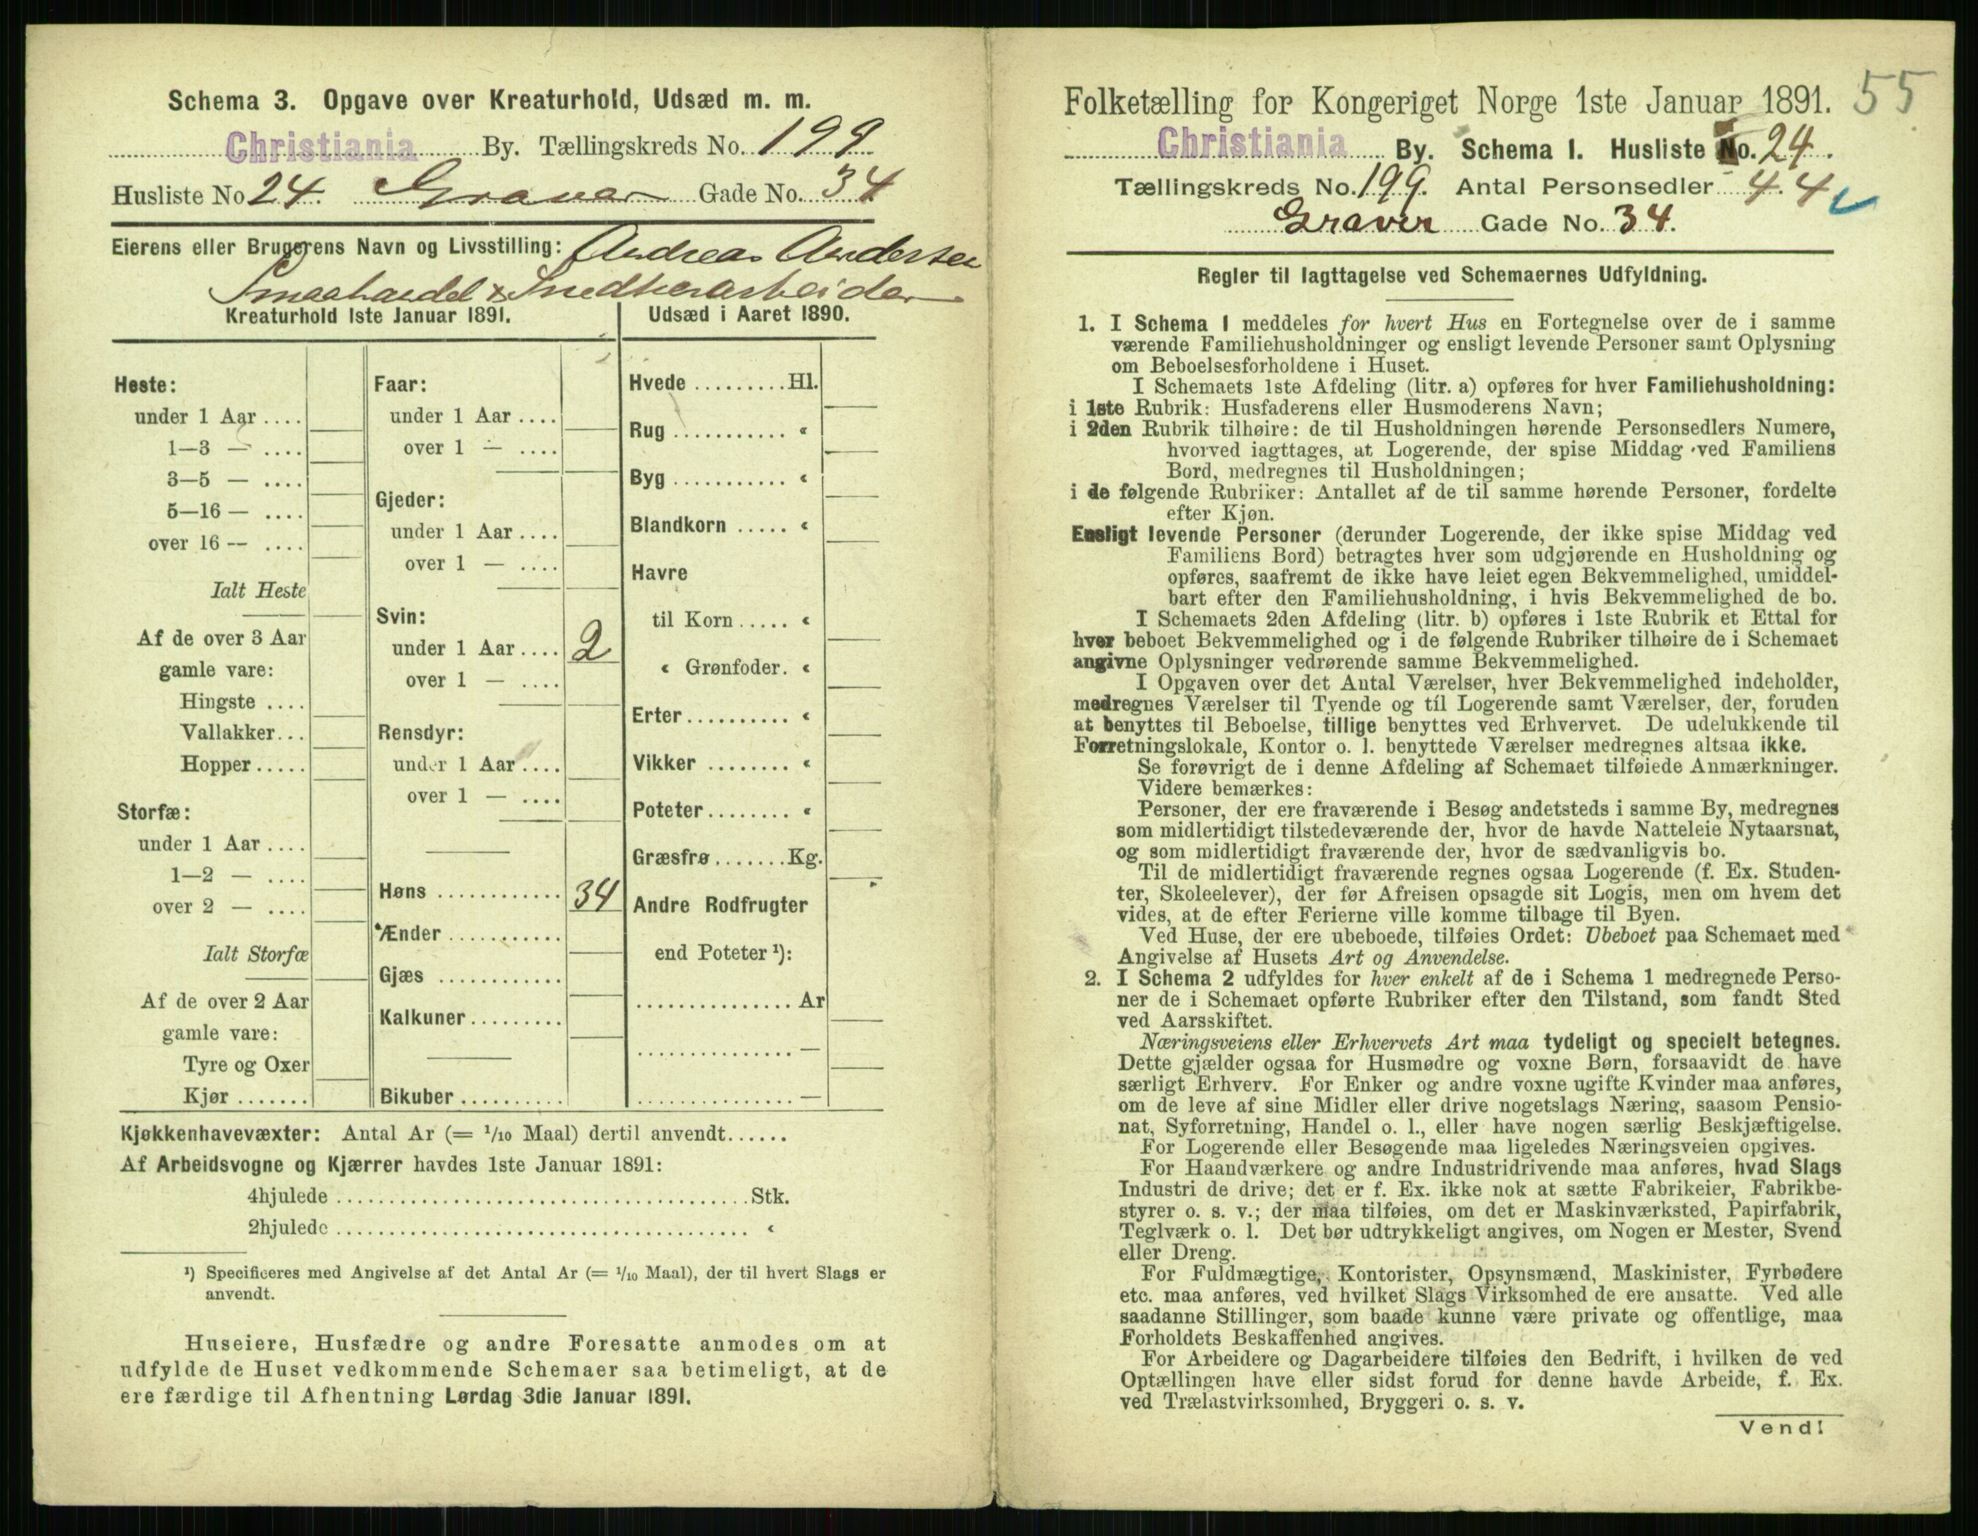 Schema 3. Opgave over Kreaturhold, Udsæd m. m.
Christiania By. Tællingskreds No. 199
Husliste No 24. Graver Gade No. 34
Eierens eller Brugerens Navn og Livsstilling: Andreas Andersen
Smaahandel & Snedkerarbeider
Kreaturhold 1ste Januar 1891.
Heste:
under 1 Aar ....
1—3 — ....
3—5 — ....
5—16 — ....
over 16 — ....
Ialt Heste
Af de over 3 Aar
gamle vare:
Hingste ....
Vallakker...
Hopper.....
Storfæ:
under 1 Aar ....
1—2 — ....
over 2 — ....
Ialt Storfæ
Af de over 2 Aar
gamle vare:
Tyre og Oxer
Kjør .......
Faar:
under 1 Aar ....
over 1 — ....
Gjeder:
under 1 Aar ....
over 1 — ....
Svin:
under 1 Aar .... 2
over 1 — ....
Rensdyr:
under 1 Aar ....
over 1 — ....
Høns ............ 34
Ænder ...........
Gjæs ............
Kalkuner.........
Bikuber ..........
Udsæd i Aaret 1890.
Hvede .........Hl.
Rug ........... «
Byg ........... «
Blandkorn ..... «
Havre
til Korn ..... «
« Grønfoder. «
Erter.......... «
Vikker ........ «
Poteter........ «
Græsfrø.......Kg.
Andre Rodfrugter
end Poteter ¹):
...............Ar
...............—
...............—
Kjøkkenhavevæxter: Antal Ar (= 1/10 Maal) dertil anvendt......
Af Arbeidsvogne og Kjærrer havdes 1ste Januar 1891:
4hjulede ........................................Stk.
2hjulede ........................................ «
¹) Specificeres med Angivelse af det Antal Ar (= 1/10 Maal), der til hvert Slags er
anvendt.
Huseiere, Husfædre og andre Foresatte anmodes om at
udfylde de Huset vedkommende Schemaer saa betimeligt, at de
ere færdige til Afhentning Lørdag 3die Januar 1891.
Folketælling for Kongeriget Norge 1ste Januar 1891. 55
Christiania By. Schema 1. Husliste No. 24.
Tællingskreds No. 199. Antal Personsedler 44
Graver Gade No. 34.
Regler til Iagttagelse ved Schemaernes Udfyldning.
1. I Schema 1 meddeles for hvert Hus en Fortegnelse over de i samme
værende Familiehusholdninger og ensligt levende Personer samt Oplysning
om Beboelsesforholdene i Huset.
I Schemaets 1ste Afdeling (litr. a) opføres for hver Familiehusholdning:
i 1ste Rubrik: Husfaderens eller Husmoderens Navn;
i 2den Rubrik tilhøire: de til Husholdningen hørende Personsedlers Numere,
hvorved iagttages, at Logerende, der spise Middag ved Familiens
Bord, medregnes til Husholdningen;
i de følgende Rubriker: Antallet af de til samme hørende Personer, fordelte
efter Kjøn.
Ensligt levende Personer (derunder Logerende, der ikke spise Middag ved
Familiens Bord) betragtes hver som udgjørende en Husholdning og
opføres, saafremt de ikke have leiet egen Bekvemmelighed, umiddel-
bart efter den Familiehusholdning, i hvis Bekvemmelighed de bo.
I Schemaets 2den Afdeling (litr. b) opføres i 1ste Rubrik et Ettal for
hver beboet Bekvemmelighed og i de følgende Rubriker tilhøire de i Schemaet
angivne Oplysninger vedrørende samme Bekvemmelighed.
I Opgaven over det Antal Værelser, hver Bekvemmelighed indeholder,
medregnes Værelser til Tyende og til Logerende samt Værelser, der, foruden
at benyttes til Beboelse, tillige benyttes ved Erhvervet. De udelukkende til
Forretningslokale, Kontor o. l. benyttede Værelser medregnes altsaa ikke.
Se forøvrigt de i denne Afdeling af Schemaet tilføiede Anmærkninger.
Videre bemærkes:
Personer, der ere fraværende i Besøg andetsteds i samme By, medregnes
som midlertidigt tilstedeværende der, hvor de havde Natteleie Nytaarsnat,
og som midlertidigt fraværende der, hvor de sædvanligvis bo.
Til de midlertidigt fraværende regnes ogsaa Logerende (f. Ex. Studen-
ter, Skoleelever), der før Afreisen opsagde sit Logis, men om hvem det
vides, at de efter Ferierne ville komme tilbage til Byen.
Ved Huse, der ere ubeboede, tilføies Ordet: Ubeboet paa Schemaet med
Angivelse af Husets Art og Anvendelse.
2. I Schema 2 udfyldes for hver enkelt af de i Schema 1 medregnede Perso-
ner de i Schemaet opførte Rubriker efter den Tilstand, som fandt Sted
ved Aarsskiftet.
Næringsveiens eller Erhvervets Art maa tydeligt og specielt betegnes.
Dette gjælder ogsaa for Husmødre og voxne Børn, forsaavidt de have
særligt Erhverv. For Enker og andre voxne ugifte Kvinder maa anføres,
om de leve af sine Midler eller drive nogetslags Næring, saasom Pensio-
nat, Syforretning, Handel o. l., eller have nogen særlig Beskjæftigelse.
For Logerende eller Besøgende maa ligeledes Næringsveien opgives.
For Haandværkere og andre Industridrivende maa anføres, hvad Slags
Industri de drive; det er f. Ex. ikke nok at sætte Fabrikeier, Fabrikbe-
styrer o. s. v.; der maa tilføies, om det er Maskinværksted, Papirfabrik,
Teglværk o. l. Det bør udtrykkeligt angives, om Nogen er Mester, Svend
eller Dreng.
For Fuldmægtige, Kontorister, Opsynsmænd, Maskinister, Fyrbødere
etc. maa anføres, ved hvilket Slags Virksomhed de ere ansatte. Ved alle
saadanne Stillinger, som baade kunne være private og offentlige, maa
Forholdets Beskaffenhed angives.
For Arbeidere og Dagarbeidere tilføies den Bedrift, i hvilken de ved
Optællingen have eller sidst forud for denne havde Arbeide, f. Ex.
ved Trælastvirksomhed, Bryggeri o. s. v.
Vend!